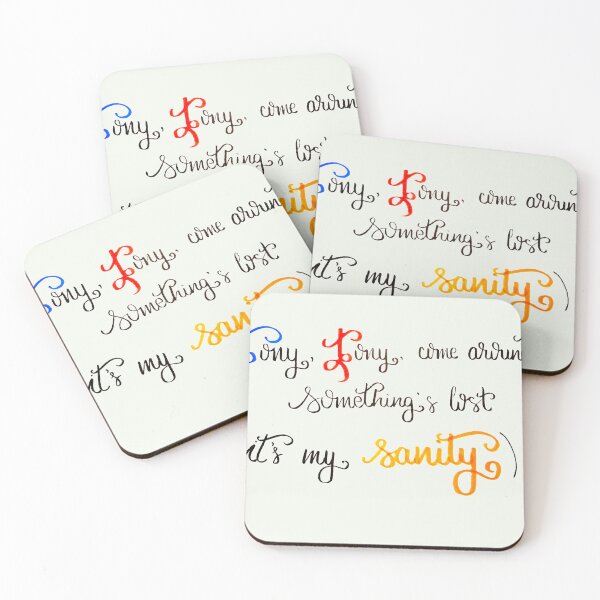 Tony, Tony, come aroun
something's lost
nity
Tony, Tony, come aroun
something's lost
it's my sanity)
Tony, Tony, come aroun
something's lost
it's my sani
Tony, Tony, come aroun
something's lost
it's my sanity)